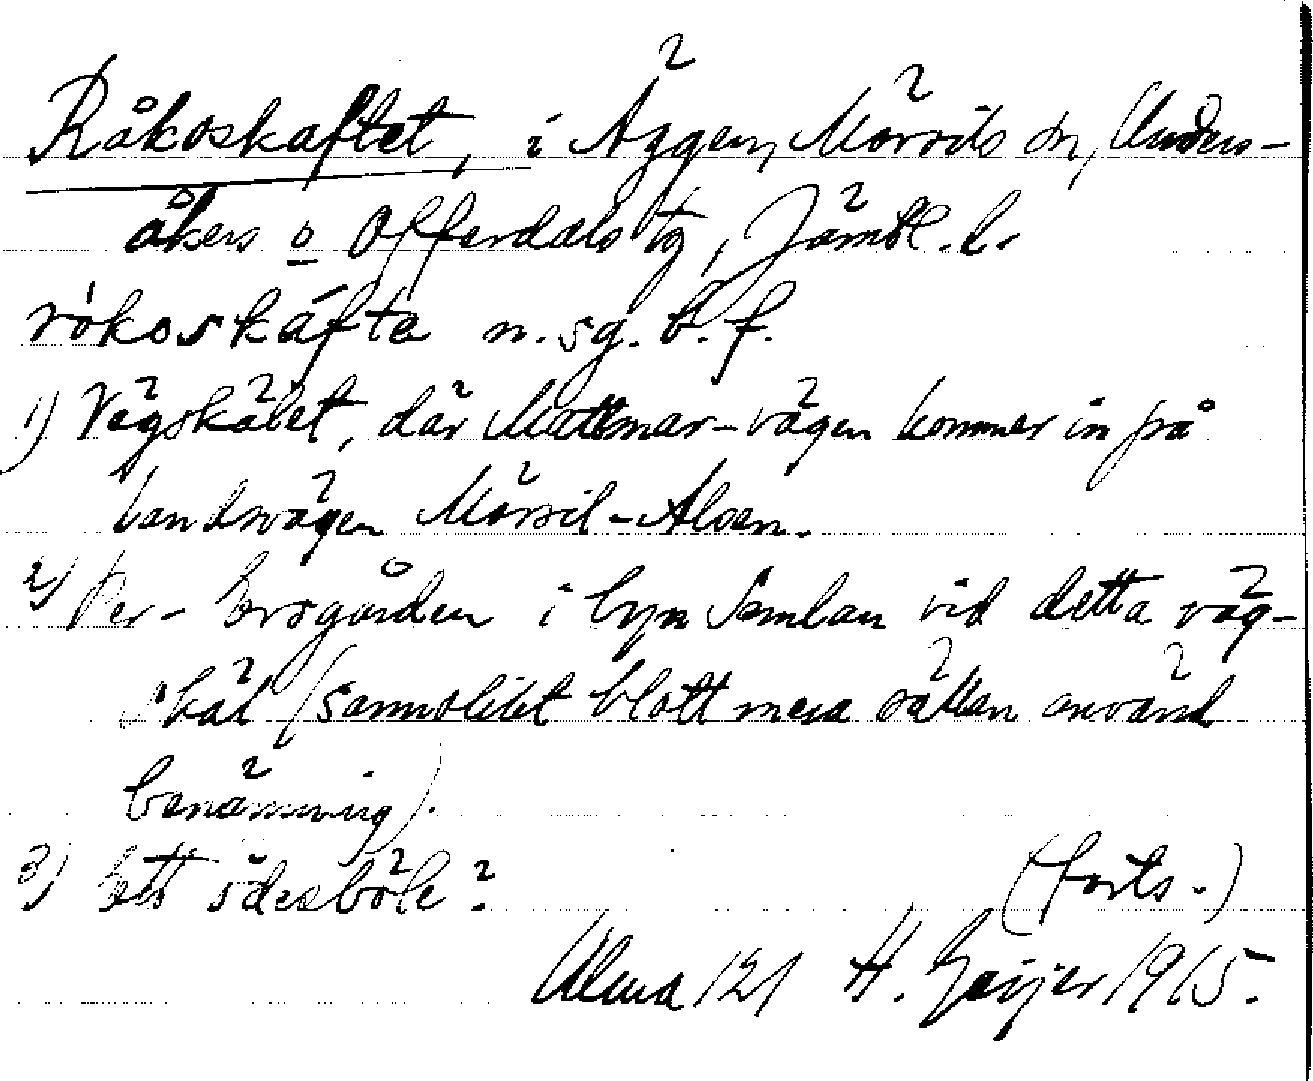 Råkoskaftet, i Äggen, Mörsils sn, Unders-
åkers o Offerdals tg, Jämtl. l.
råkoskáfta n. sg. b. f.
1) Vägskälet, där Mattmar-vägen kommer in på
landsvägen Mörsil-Alsen.
2) Per-Ersgården i byn Semlan vid detta väg-
skäl (sannolikt blott mera sällan använd
benämning).
3) Ett ödesböle?
(forts.)
Ulma 121 H. Geijer 1915.